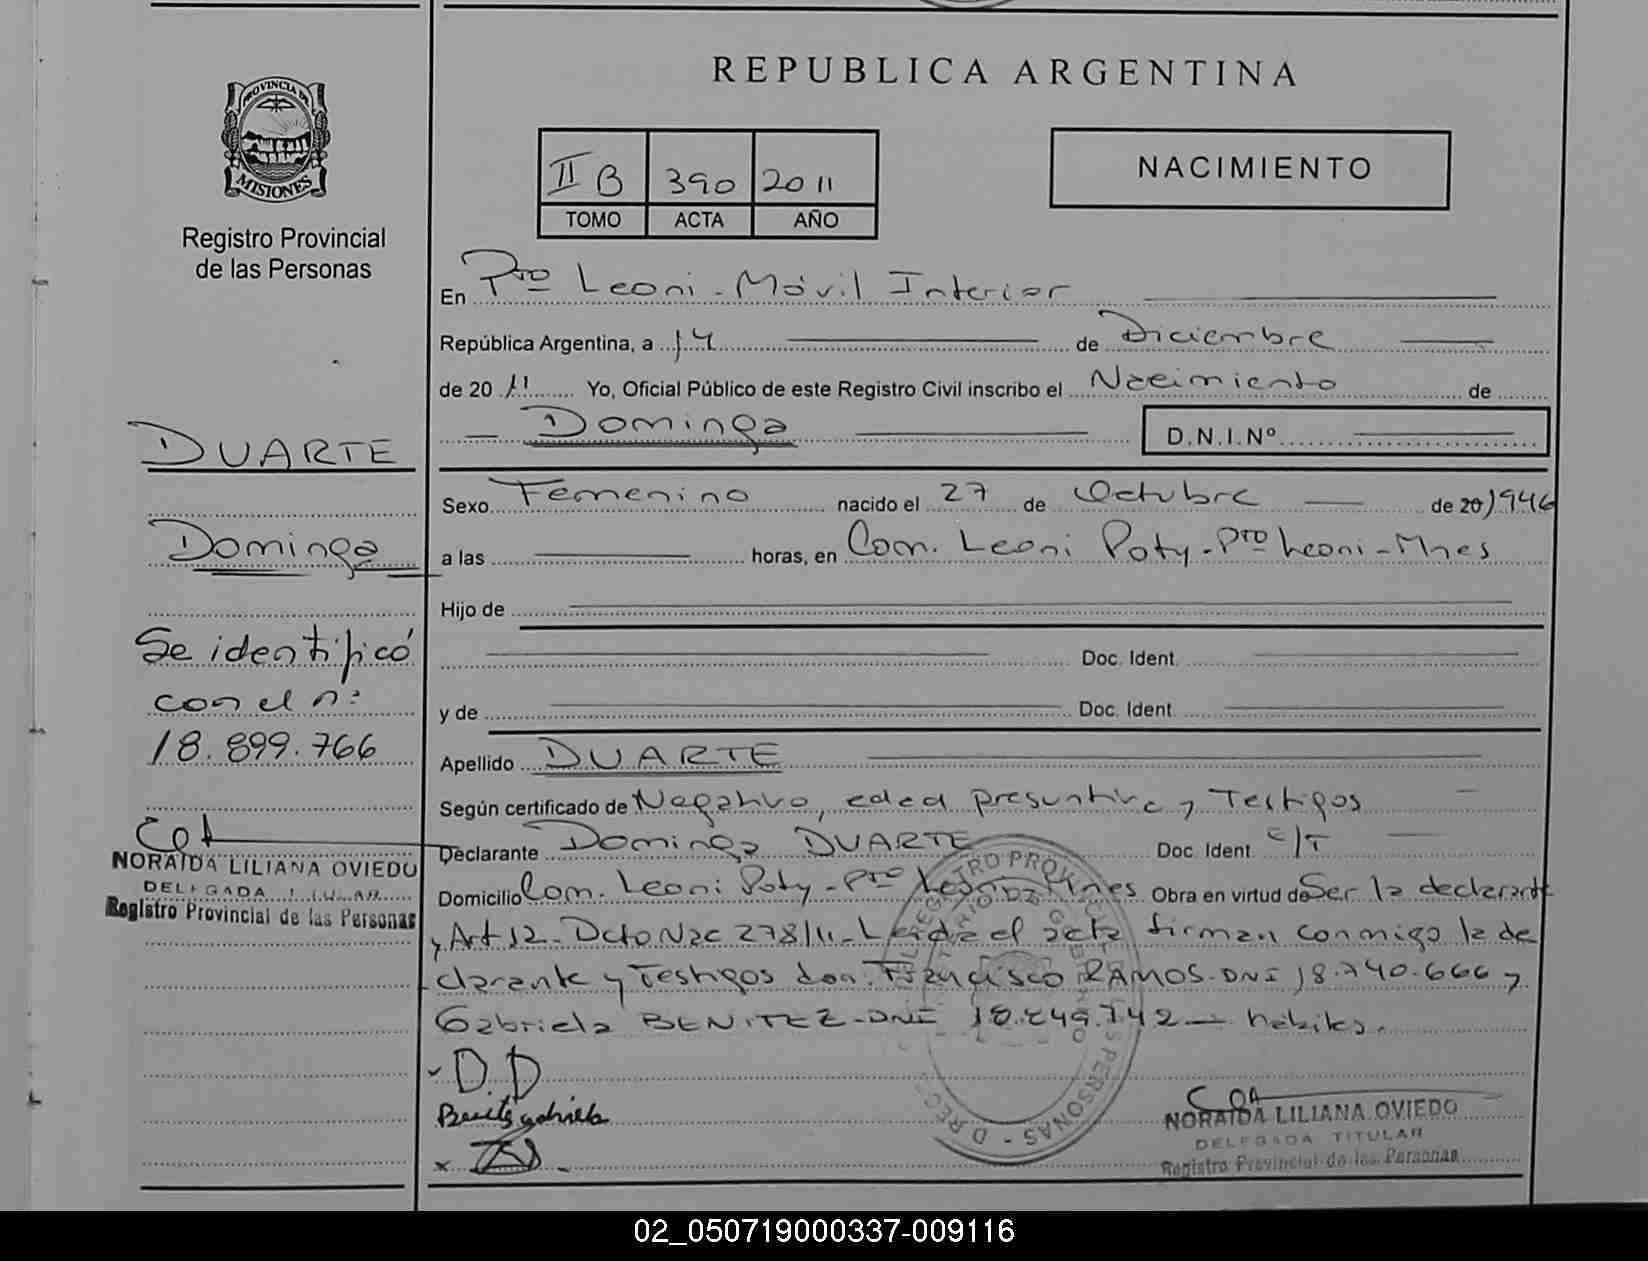 REPUBLICA ARGENTINA
PROVINCIA DE
MISIONES
Registro Provincial
de las Personas
II B 390 2011
TOMO ACTA AÑO
NACIMIENTO
En Pto Leoni - Móvil Interior
República Argentina, a 14 de Diciembre
de 20 11 Yo, Oficial Público de este Registro Civil inscribo el Nacimiento de
Dominga D.N.I.Nº
DUARTE
Dominga
Se identificó
con el nº
18.899.766
NORAIDA LILIANA OVIEDO
DELEGADA TITULAR
Registro Provincial de las Personas
Sexo Femenino nacido el 27 de Octubre de 20 1946
a las horas, en Com. Leoni Poty - Pto Leoni - Mnes
Hijo de
Doc. Ident.
y de Doc. Ident.
Apellido DUARTE
Según certificado de Negativo, edad presuntiva y Testigos
Declarante Dominga DUARTE Doc. Ident. C/T
Domicilio Com. Leoni Poty - Pto Leoni Mnes Obra en virtud de Ser la declarante
y Art 12 - Dcto Nac 278/11 - Leída el acta firman conmigo la de
clarante y Testigos don: Francisco RAMOS - DNI 18.740.666 y
Gabriela BENITEZ - DNI 18.849.742 - hábiles.
D.D
Benitez gabriela
NORAIDA LILIANA OVIEDO
DELEGADA TITULAR
Registro Provincial de las Personas
02_050719000337-009116